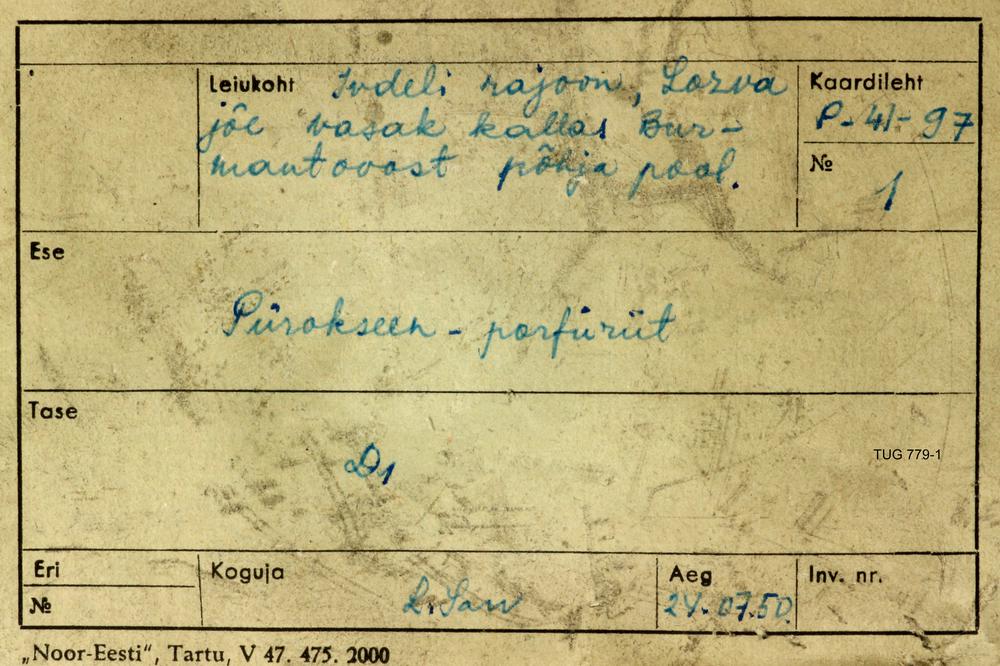 Leiukoht Ivdeli rajoon, Lozva
jõe vasak kallas Bur-
mantovost põhja pool.
Kaardileht
P-41-97
№
1
Ese
Pürokseen - porfüriit
Tase
D1
TUG 779-1
Eri
№
Koguja
Aeg
Inv. nr.
„Noor-Eesti“, Tartu, V 47. 475. 2000